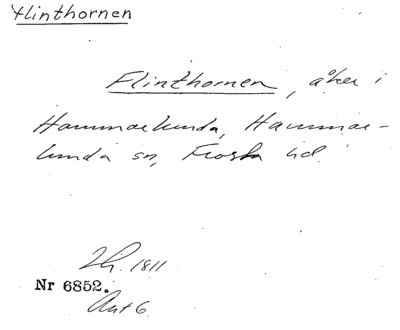 Flinthornen
Flinthornen, åker i
Hammarlunda, Hammar-
lunda sn, Frosta hd.
1811
Nr 6852.